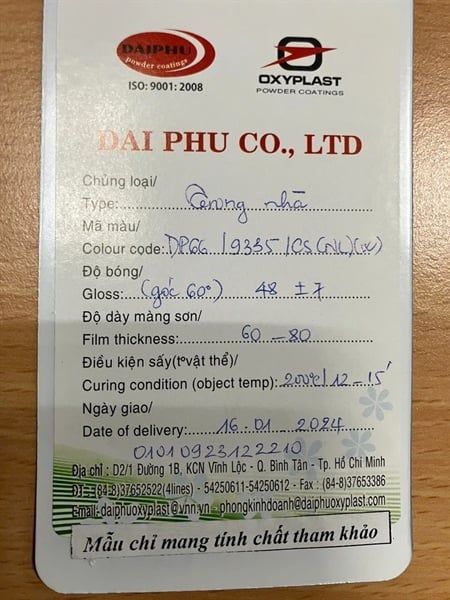 DAIPHU
powder coatings
ISO: 9001: 2008
OXYPLAST
POWDER COATINGS
DAI PHU CO., LTD
Chủng loại/
Type: trong nhà
Mã màu/
Colour code: DP66 / 9335 / CS (NL)
Độ bóng/
Gloss: (góc 60°) 48 ± 7
Độ dày màng sơn/
Film thickness: 60 – 80
Điều kiện sấy(t°vật thể)/
Curing condition (object temp): 200°C / 12 – 15'
Ngày giao/
Date of delivery: 16.01.2024
0101092312 2210
Địa chỉ : D2/1 Đường 1B, KCN Vĩnh Lộc - Q. Bình Tân - Tp. Hồ Chí Minh
ĐT : (84-8)37652522(4lines) - 54250611-54250612 - Fax : (84-8)37653386
Email: daiphuoxyplast@vnn.vn - phongkinhdoanh@daiphuoxyplast.com
Mẫu chỉ mang tính chất tham khảo